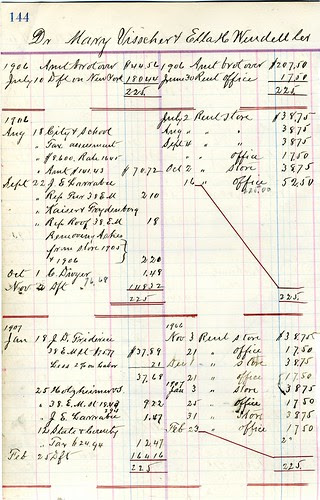 144
Dr Mary Visscher & Ella H Wendell Cr
1906 Amt brd over $44.56 1906 Amt brd over $207.50
July 10 Dft on New York 180.44 June 30 Rent office 17.50
225. 225.
1906 July 2 Rent Store $38.75
Aug 18 City & School Aug " " 38.75
" Tax assessment Sept 4 " " 38.75
" $9,600. Rate " office 17.50
" Amt $101.43 $70.72 Oct 2 " Store 38.75
Sept 22 J E Carrabie 16 " office 52.50
" Rep Pier 38 E M 2.10
" Kaiser & Froydenborg
" Rep Roof 38 E M 18
Removing Ashes
from store 1905
& 1906 2.20
Oct 1 C. Dwyer 1.48
Nov 2 Dft 148.32
225 225.
1907 1906
Jan 18 J. D. Frederice Nov 3 Rent store $38.75
38 E M St $37.99 21 " office 17.50
Less 2% on labor 21 Dec 1 " Store 38.75
37.68 21 " office 17.50
25 Holzheimers 1907 Jan 3 " Store 38.75
" 38 E M St 9.22 25 " office 17.50
" J. E. Carrabie 1.47 31 " Store 38.75
12 State & County Feb 23 " office 17.50
" Tax 12.47
Feb 25 Dft 164.16
225 225.